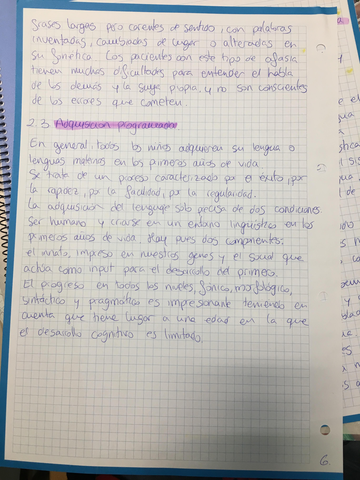 frases largas pero carentes de sentido, con palabras
inventadas, cambiadas de lugar o alteradas en
su fonética. Los pacientes con este tipo de afasia
tienen muchas dificultades para entender el habla
de los demás y la suya propia y no son conscientes
de los errores que cometen.
2.3. Adquisición programada
En general todos los niños adquieren su lengua o
lenguas maternas en los primeros años de vida.
Se trata de un proceso caracterizado por el éxito, por
la rapidez, por la facilidad, por la regularidad.
La adquisición del lenguaje solo precisa de dos condiciones
ser humano y criarse en un entorno lingüístico en los
primeros años de vida. Hay pues dos componentes:
el innato, impreso en nuestros genes y el social que
actúa como input para el desarrollo del primero.
El progreso en todos los niveles, fónico, morfológico,
sintáctico y pragmático es impresionante teniendo en
cuenta que tiene lugar a una edad en la que
el desarollo cognitivo es limitado.
6